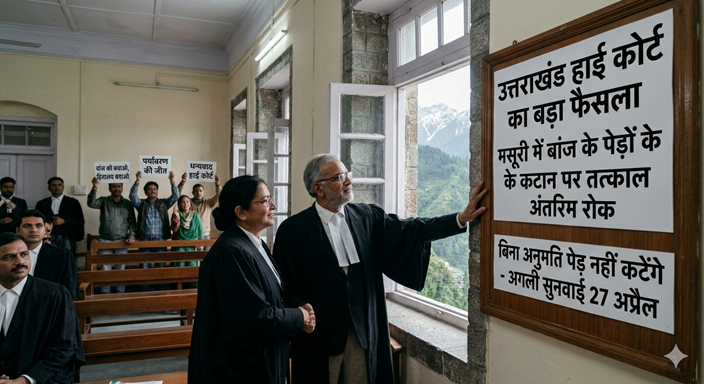 उत्तराखंड हाई कोर्ट
का बड़ा फैसला
मसूरी में बांज के पेड़ों के
के कटान पर तत्काल
अंतरिम रोक
बिना अनुमति पेड़ नहीं कटेंगे
- अगली सुनवाई 27 अप्रैल
बांज को बचाओ,
हिमालय बचाओ
पर्यावरण
की जीत
धन्यवाद
हाई कोर्ट